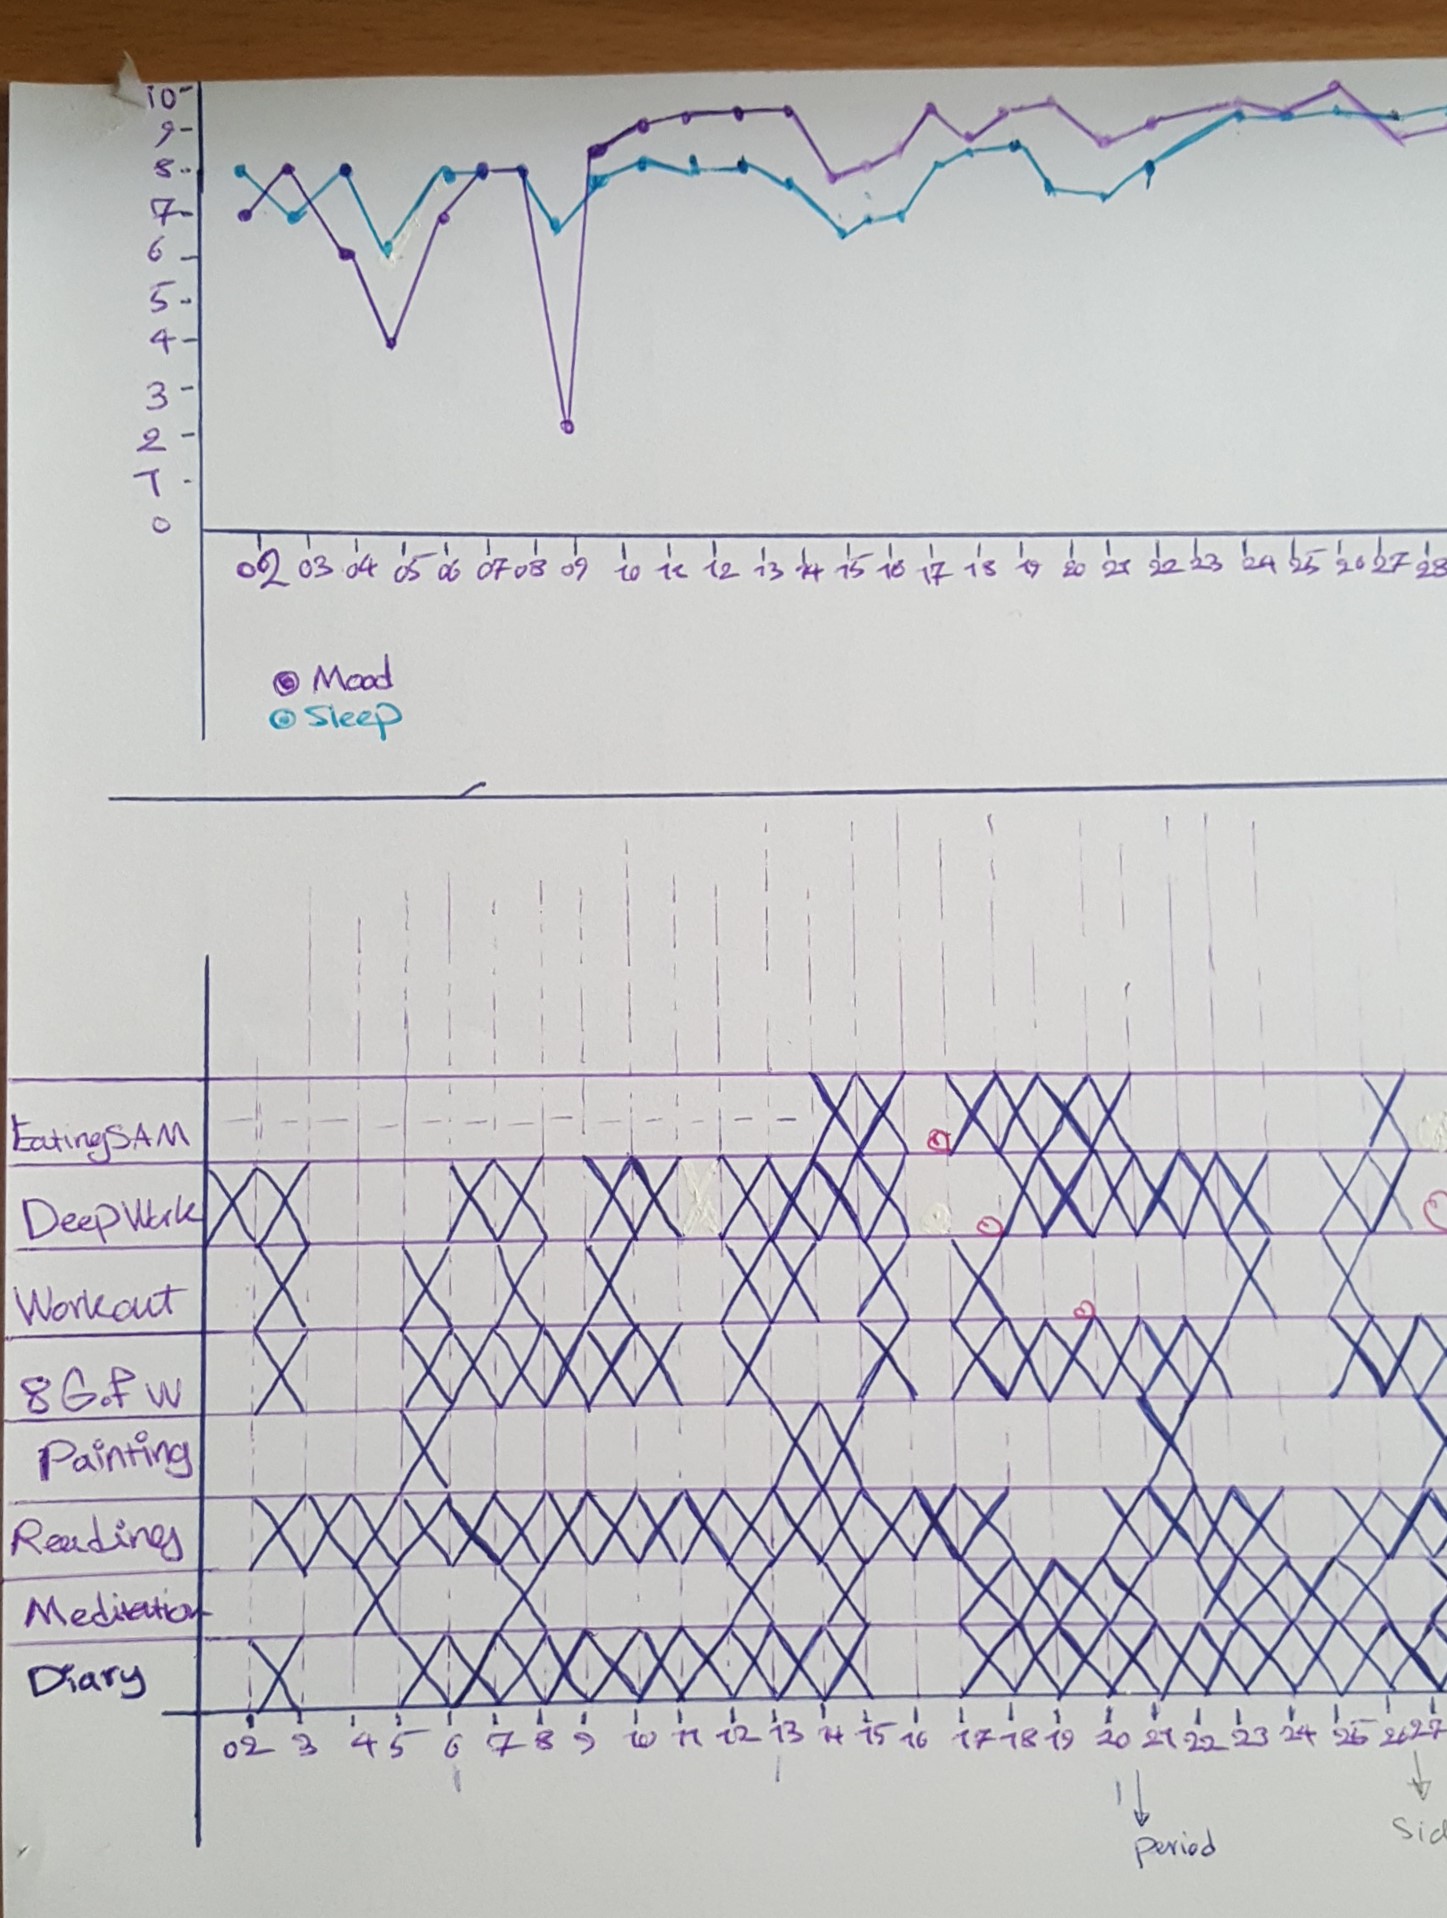 10
9
8
7
6
5
4
3
2
1
0
02 03 04 05 06 07 08 09 10 11 12 13 14 15 16 17 18 19 20 21 22 23 24 25 26 27 28
Mood
Sleep
Eating SAM
Deep Work
Workout
8 G.f W
Painting
Reading
Meditation
Diary
02 3 4 5 6 7 8 9 10 11 12 13 14 15 16 17 18 19 20 21 22 23 24 25 26 27
Period